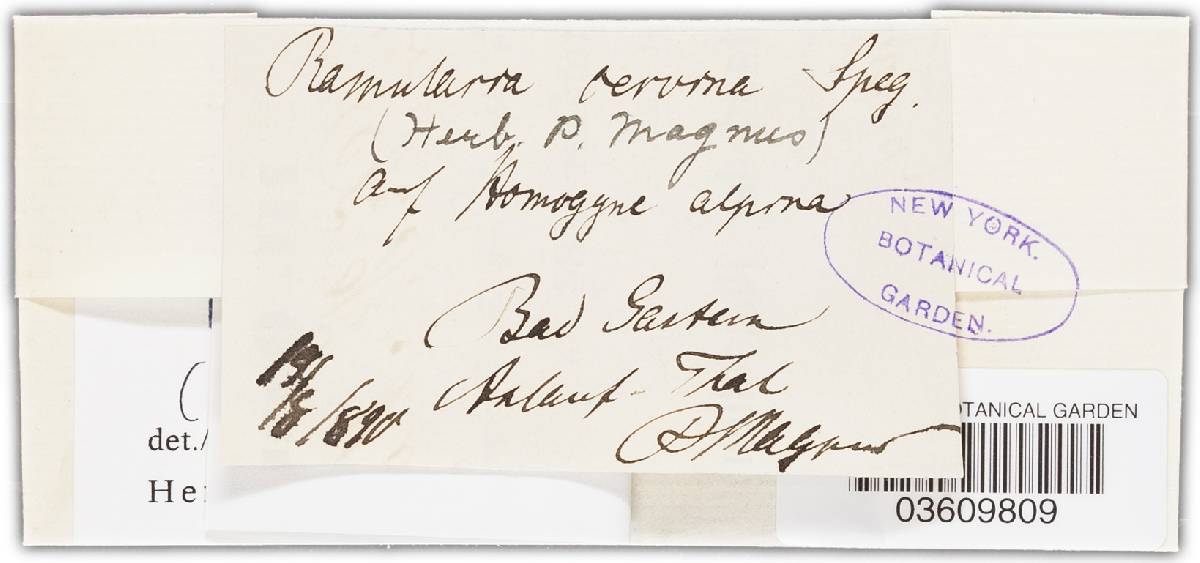 Ramularia cervina Speg.
(Herb. P. Magnus)
auf Homogyne alpina
NEW YORK.
BOTANICAL
GARDEN.
Bad Gastein
Anlauf-Thal
19/8/1890
P Magnus
(
det./
Her
OTANICAL GARDEN
03609809